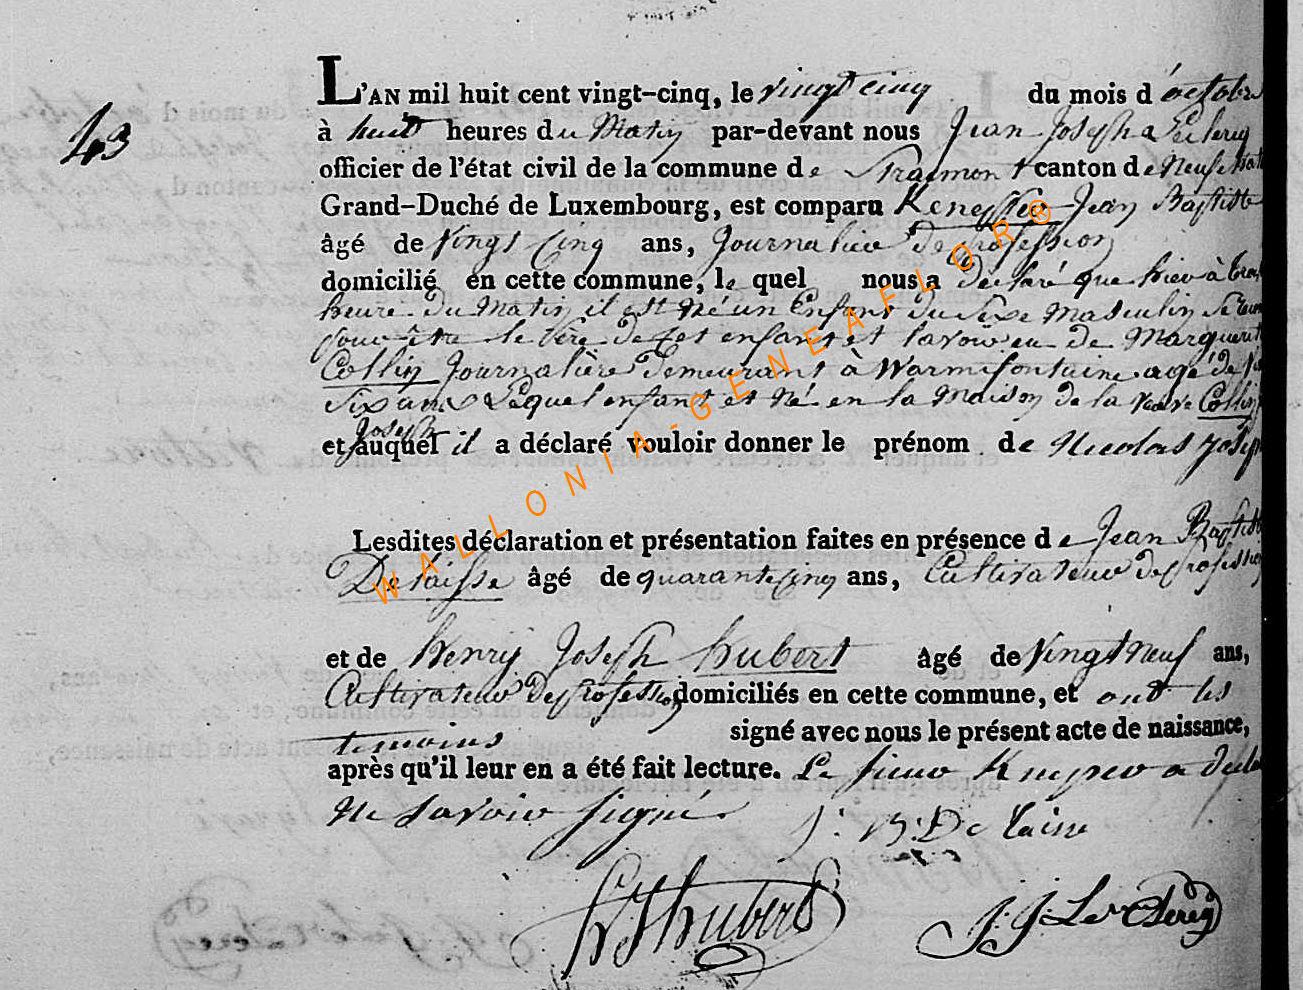 43
L'AN mil huit cent vingt-cinq, le vingt cinq du mois d'octobre
à huit heures du Matin par-devant nous Jean Joseph Leclercq
officier de l'état civil de la commune de Straimont canton de Neufchat
Grand-Duché de Luxembourg, est comparu Jean Baptiste
âgé de Vingt Cinq ans, Journalier de profession
domicilié en cette commune, le quel nous a déclaré que hier à
heure du Matin il est Né un Enfant du Sexe Masculin
pour être le Père de Cet enfant et l'avoir eu de Marguerit
Collin Journalière Demeurant à Warmifontaine agé de
Six ans Lequel enfant et Né en la Maison de la veuve Collin
Joseph
et auquel il a déclaré vouloir donner le prénom de Nicolas Josep
Lesdites déclaration et présentation faites en présence de Jean Baptist
Detaisse âgé de quarante cinq ans, Cultivateur de profession
et de Henry Joseph hubert âgé de Vingt Neuf ans,
Cultivateur de profession domiciliés en cette commune, et ont les
temoins signé avec nous le présent acte de naissance,
après qu'il leur en a été fait lecture. Le sieur a
Ne Savoir Signé.
J: B: De taisse
H J hubert
J J Leclercq
WALLONIA-GENEAFLOR®